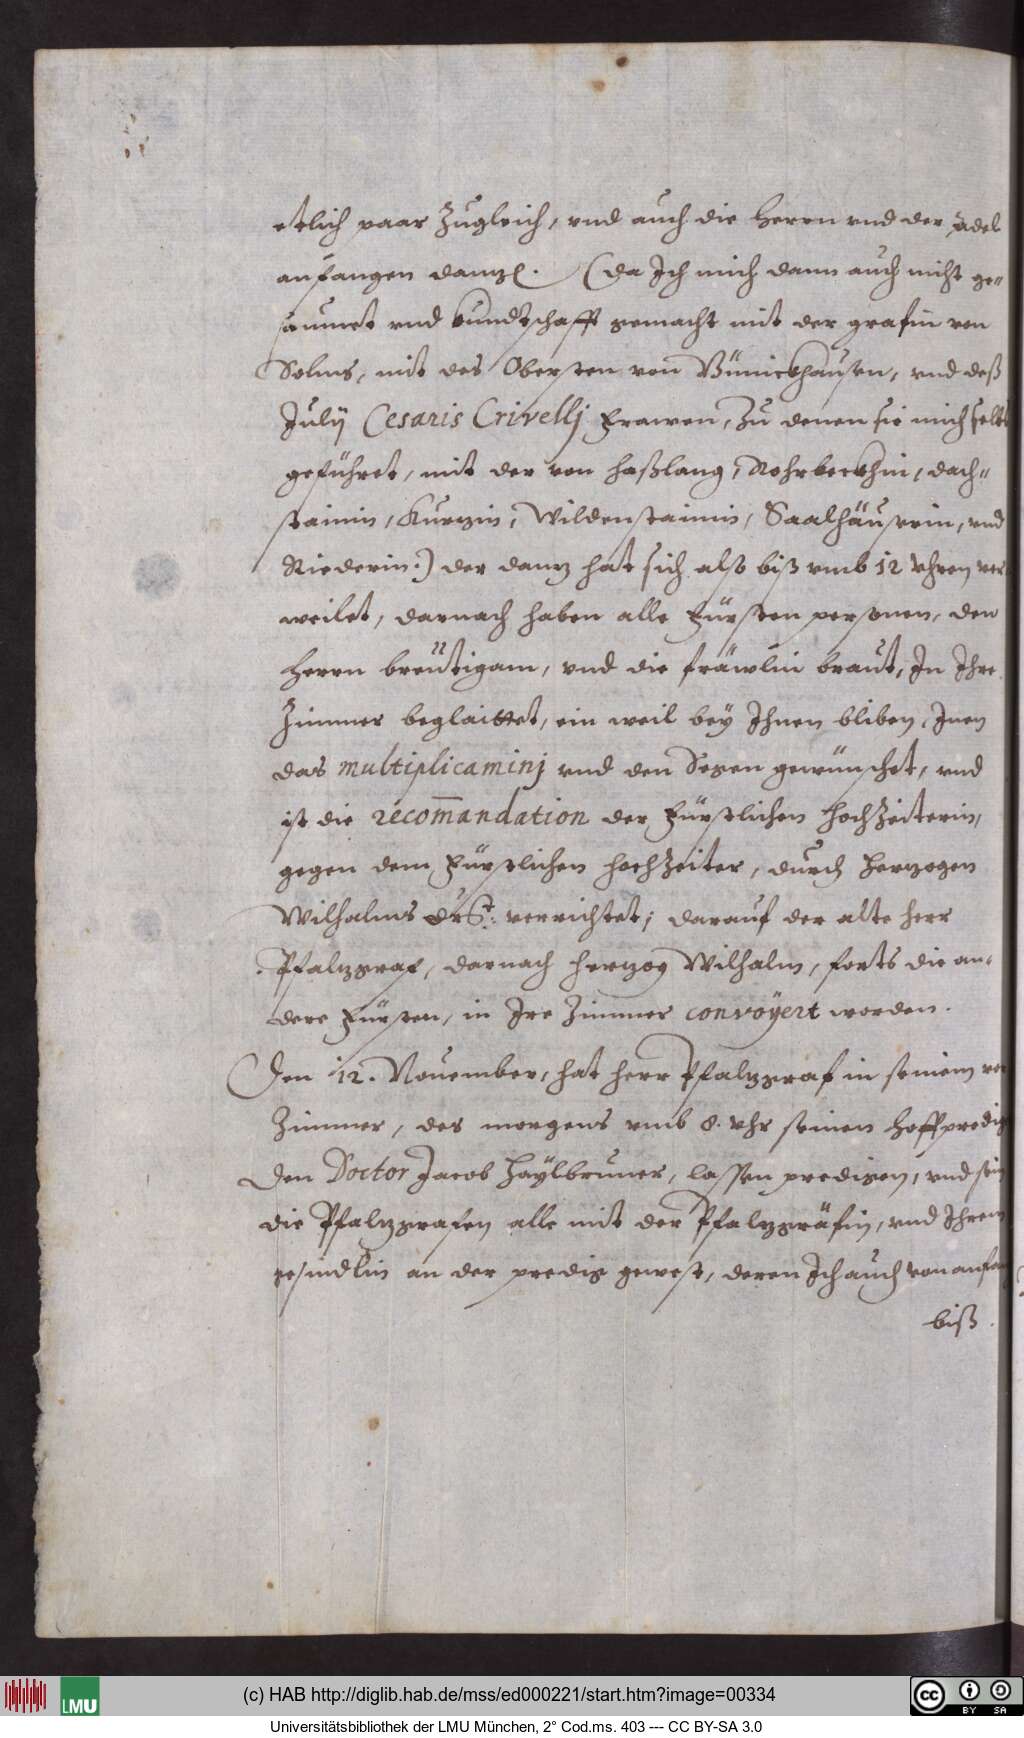 etlich paar Zugleich, vnd auch die Herrn vnd der Adel
anfangen dantzen. (da Ich mich dann auch nicht ge=
saumet vnd kundtschafft gemacht mit der grafin von
Solms, mit des Obersten von Bünickhausen, vnd deß
Julij Cesaris Crivellj Frawen, Zu denen sie mich selbs
geführet, mit der von Haßlang, Rohrbeckhin, dach=
stainin, Kurtzin, Wildenstainin, Saalhäuserin, vnd
Riederin.) der dantz hat sich also biß vmb 12 Vhren ver
weilet, darnach haben alle Fürsten personen, den
Herrn breütigam, vnd die fräwlin braut, In Ihre
Zimmer beglaittet, ein weil bey Ihnen bliben, Inen
das multiplicaminj vnd den Segen gewünschet, vnd
ist die recom̄andation der Fürstlichen HochZeiterin,
gegen dem Fürstlichen HochZeiter, durch Hertzogen
Wilhalms verrichtet; darauf der alte Herr
Pfaltzgraf, darnach Hertzog Wilhalm, forts die an=
dere Fürsten, in Ire Zimmer convoÿert worden.
Den 12. Nouember, hat Herr Pfaltzgraf in seinem vor
Zimmer, des morgens vmb 8. Vhr seinen Hoffpredig
den Doctor Jacob Haÿlbruner, lassen predigen, vnd sein
die Pfaltzgrafen alle mit der Pfaltzgräfin, vnd Ihrem
gesindlin an der predig gewest, deren Ich auch von anfang
biß
(c) HAB http://diglib.hab.de/mss/ed000221/start.htm?image=00334
LMU
cc BY SA
Universitätsbibliothek der LMU München, 2° Cod.ms. 403 --- CC BY-SA 3.0